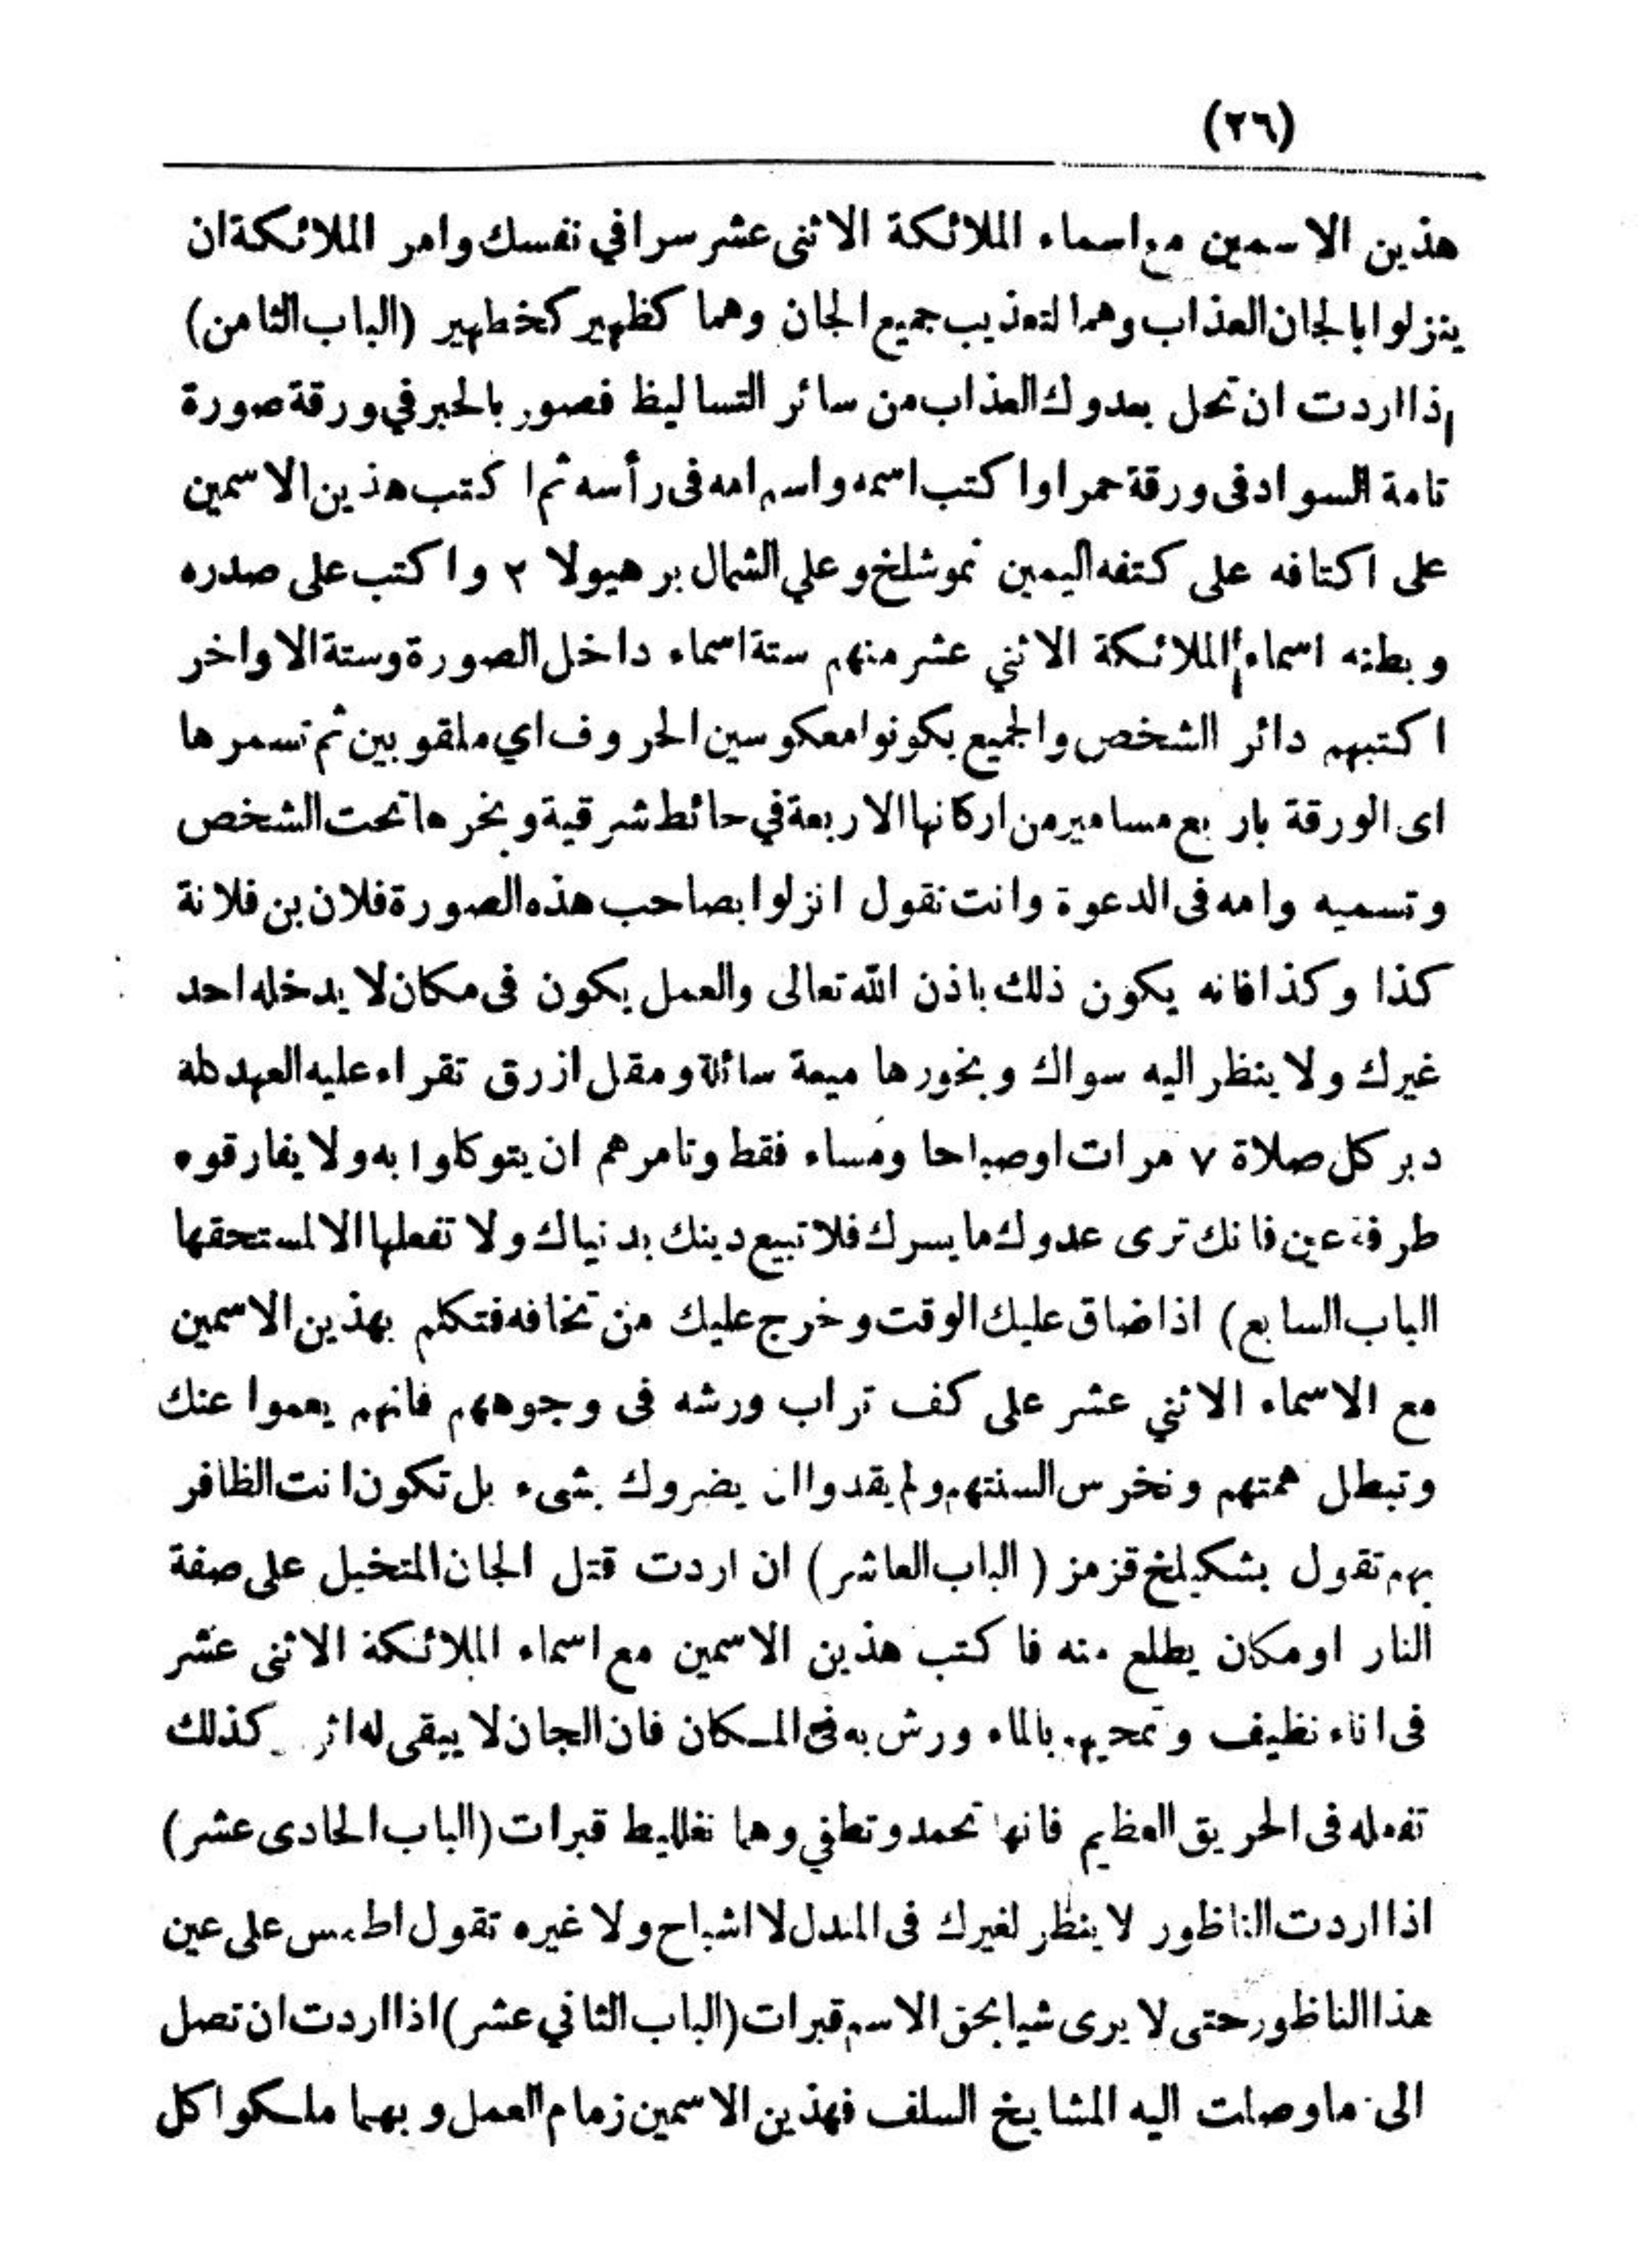 (٢٦)
هذين الاسمين مع اسماء الملائكة الاثنى عشر سرا في نفسك وامر الملائكة ان
ينزلوا بالجان العذاب وهما لتعذيب جميع الجان وهما كظهير كخطهير (الباب الثامن)
إذا اردت ان تحل بعدوك العذاب من سائر التساليظ فصور بالحبر في ورقة صورة
تامة السواد فى ورقة حمرا واكتب اسمه واسم امه فى رأسه ثم اكتب هذين الاسمين
على اكتافه على كتفه اليمين نموشلخ وعلي الشمال برهيولا ٢ واكتب على صدره
وبطنه اسماء الملائكة الاثني عشر منهم ستة اسماء داخل الصورة وستة الاواخر
اكتبهم دائر الشخص والجميع يكونوا معكوسين الحروف اي ملقوبين ثم تسمرها
اى الورقة باربع مسامير من اركانها الاربعة في حائط شرقية وبخرها تحت الشخص
وتسميه وامه فى الدعوة وانت تقول انزلوا بصاحب هذه الصورة فلان بن فلانة
كذا وكذا فانه يكون ذلك باذن الله تعالى والعمل يكون فى مكان لا يدخله احد
غيرك ولا ينظر اليه سواك وبخورها ميعة سائلة ومقل ازرق تقراء عليه العهد كله
دبر كل صلاة ٧ مرات او صباحا ومساء فقط وتامرهم ان يتوكلوا به ولا يفارقوه
طرفة عين فانك ترى عدوك ما يسرك فلا تبيع دينك بدنياك ولا تفعلها الا لمستحقها
الباب السابع) اذا ضاق عليك الوقت وخرج عليك من تخافه فتكلم بهذين الاسمين
مع الاسماء الاثني عشر على كف تراب ورشه فى وجوههم فانهم يعموا عنك
وتبطل همتهم ونخرس السنتهم ولم يقدوا ان يضروك بشىء بل تكون انت الظافر
بهم تقول بشكيلخ قزمز (الباب العاشر) ان اردت قتل الجان المتخيل على صفة
النار او مكان يطلع منه فاكتب هذين الاسمين مع اسماء الملائكة الاثنى عشر
فى اناء نظيف وتمحيهم بالماء ورش به فى المكان فان الجان لا يبقى له اثر كذلك
تفعله فى الحريق العظيم فانها تحمد وتطفي وهما نغلليط قبرات (الباب الحادى عشر)
اذا اردت الناظور لا ينظر لغيرك فى المندل لا اشباح ولا غيره تقول اطمس على عين
هذا الناظور حتى لا يرى شيا بحق الاسم قبرات (الباب الثاني عشر) اذا اردت ان تصل
الى ما وصلت اليه المشايخ السلف فهذين الاسمين زمام العمل وبهما ملكوا كل